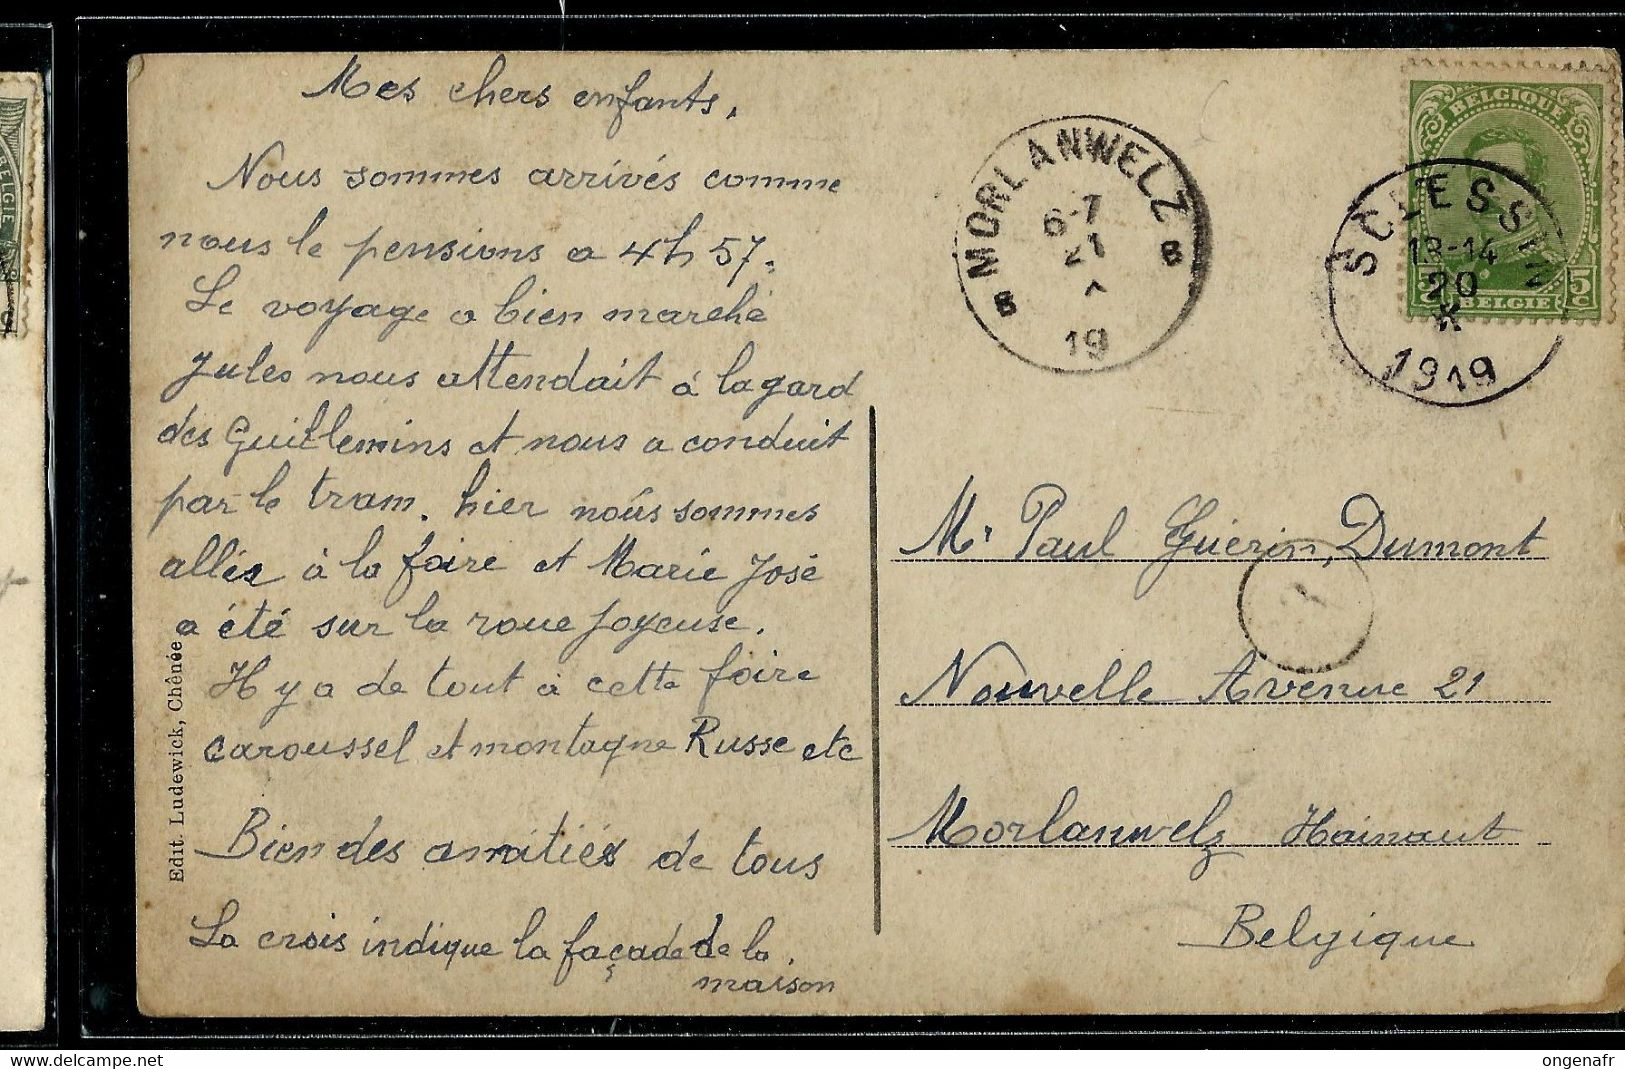 Mes chers enfants,
Nous sommes arrivés comme
nous le pensions a 4h 57.
Le voyage a bien marché
Jules nous attendait á la gard
des Guillemins et nous a conduit
par le tram. hier nous sommes
allés à la foire et Marie José
a été sur la roue Joyeuse.
Il y a de tout a cette foire
caroussel et montagne Russe etc
Bien des amitiés de tous
La crois indique la façade de la
maison
Edit. Ludewick, Chênée
MORLANWELZ
6-7
21
19
B B
BELGIQUE
5c 5c
BELGIE
SCLESSIN
13-14
20
X
1919
Mr Paul Guérin, Dumont
Nouvelle Avenue 21
Morlanwelz Hainaut
Belgique
1
BELGIE
ongenafr
delcampe.net